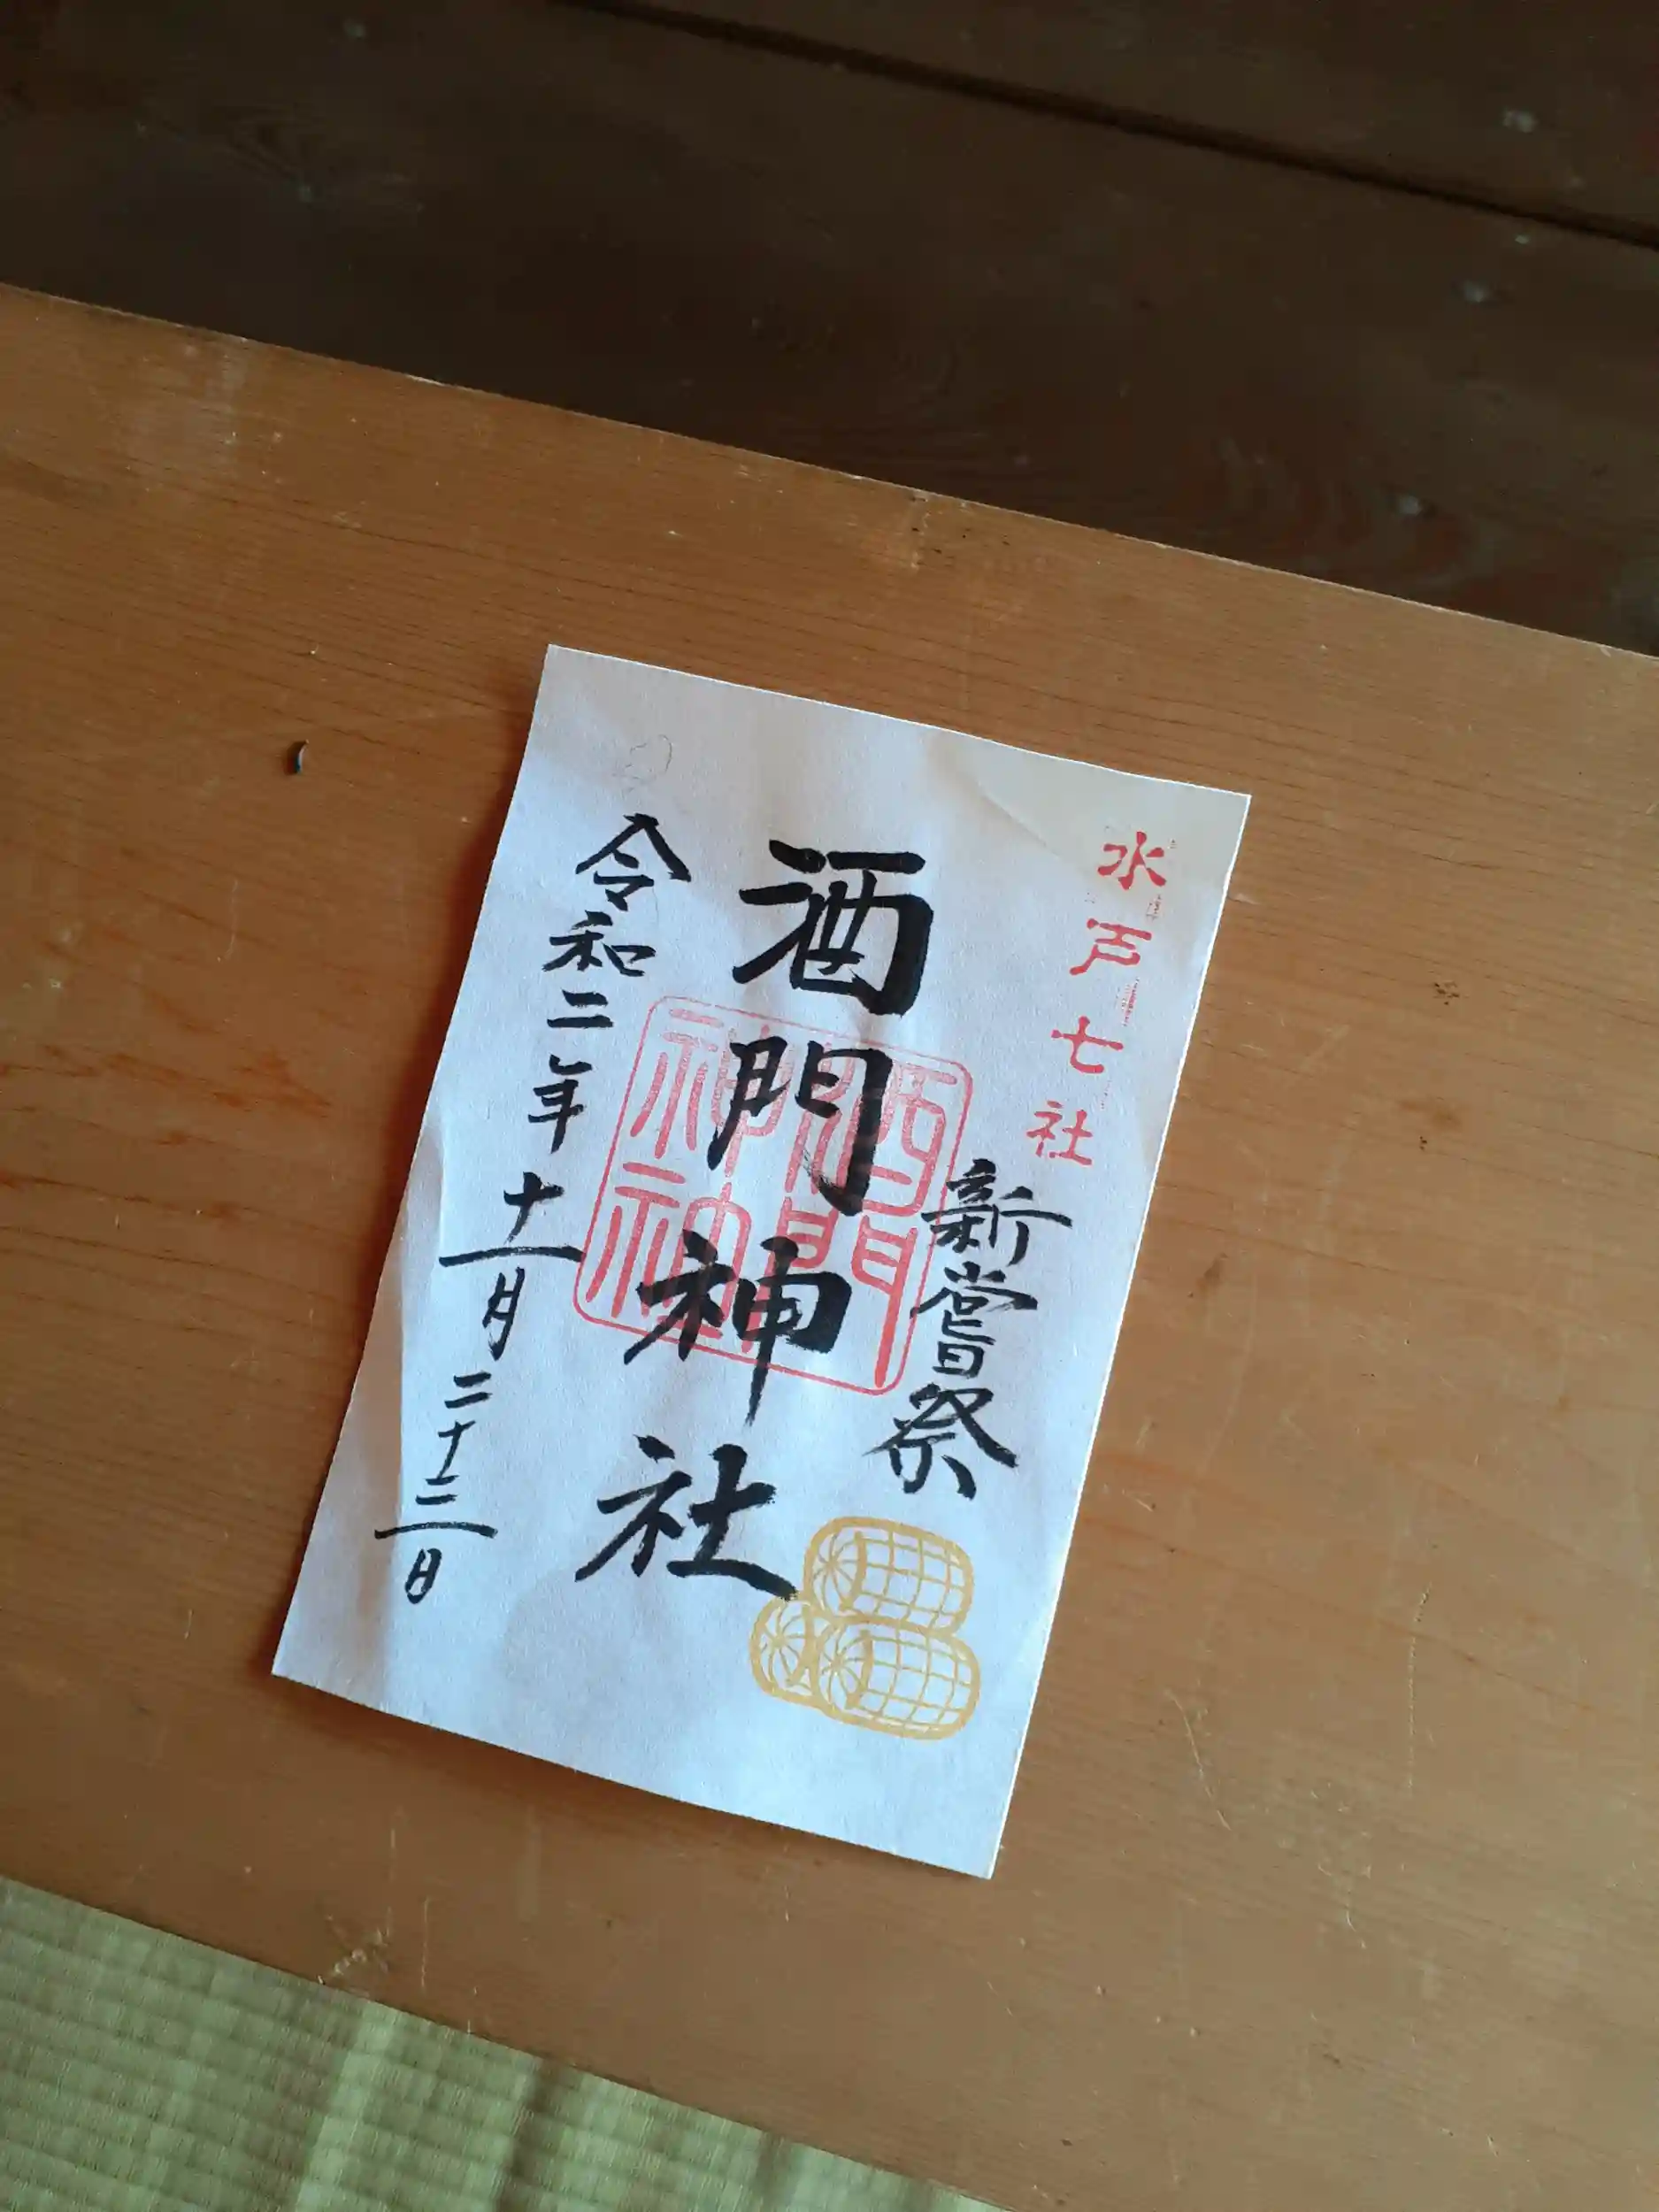 水戸七社
新嘗祭
酒門神社
酒門
神社
令和二年十一月二十三日